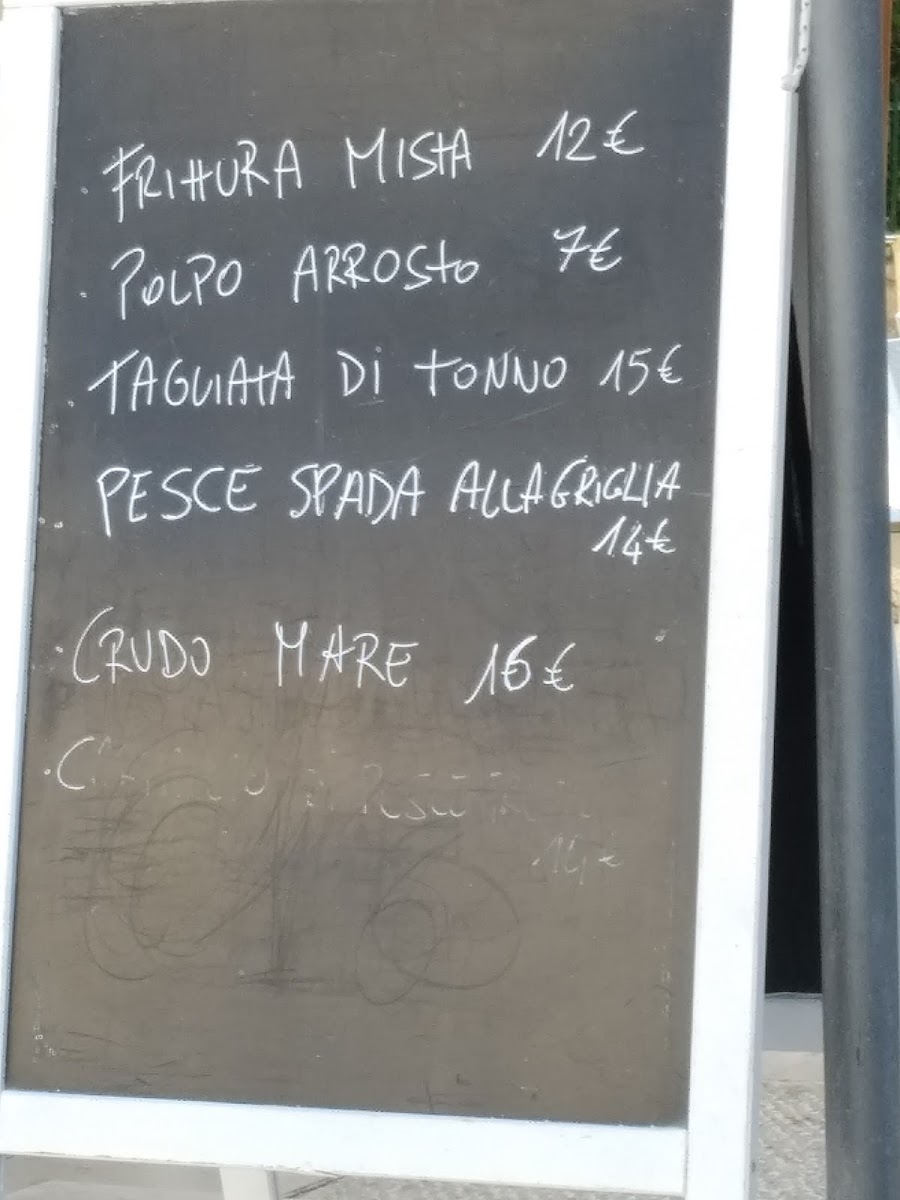 FRITTURA MISTA 12€
POLPO ARROSTO 7€
TAGLIATA DI TONNO 15€
PESCE SPADA ALLA GRIGLIA
14€
CRUDO MARE 16€
PESCE
14€